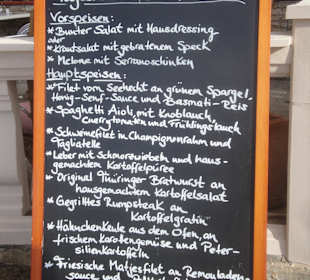 Vorspeisen:
* Bunter Salat mit Hausdressing
oder
* Krautsalat mit gebratenem Speck
* Melone mit Serranoschinken
Hauptspeisen:
* Filet vom Seehecht an grünem Spargel,
Honig-Senf-Sauce und Basmati-Reis
* Spaghetti Aioli, mit Knoblauch,
Cherrytomaten und Frühlingslauch
* Schweinefilet in Champignonrahm und
Tagliatelle
* Leber mit Schmorzwiebeln und haus-
gemachtem Kartoffelpüree
* Original Thüringer Bratwurst an
hausgemachtem Kartoffelsalat
* Gegrilltes Rumpsteak an
Kartoffelgratin
* Hähnchenkeule aus dem Ofen, an
frischem Karottengemüse und Peter-
silienkartoffeln
* Friesische Matjesfilet an Remouladen-
sauce und